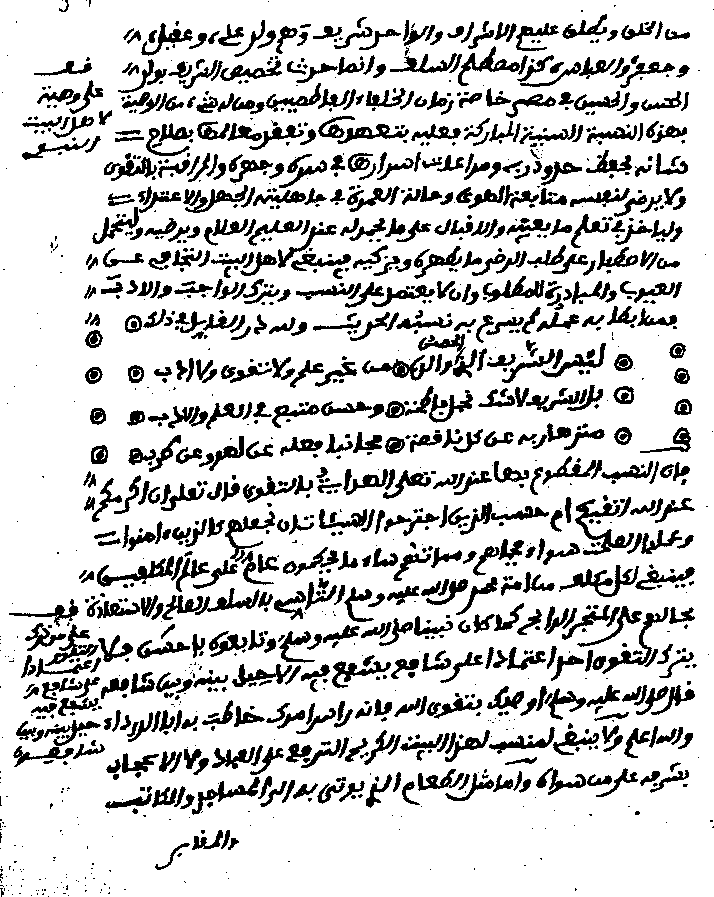 من الخلف ويطلق عليهم الاشراف والواحد شريف وهم ولد علي وعقيل
وجعفر والعباس كذا مصطلح السلف وانما حدث تخصيص الشريف بولد
الحسن والحسين في مصر خاصة زمان الخلفاء الفاطميين
بهذه النسبة السنية المباركة فعليه بتعهدها وتفقد معالمها بصلاح
شانه بحفظ حدود ربه ومراعات اسرارها في سره وجهره والمراقبة بالتقوى
ولا يرضى لنفسه متابعة الهوى وحالة العمرة في جاهلية الجهل والاغترار
ولياخذ في تعلم ما يعنيه والاقبال على ما يحمد له عند العليم العلام ويرضيه
من الاصطبار على طلب الرضى ما يطهره ويزكيه فينبغي لاهل البيت التجافي عن
العيوب والمبادرة للمطلوب وان لا يعتمد على النسب ويترك الواجب والادب
فمن ابطا به عمله لم يسرع به نسبه الحديث ولله در القايل في ذلك
ليس الشريف الذي من غير علم ولا تقوى ولا ادب
بل الشريف لا شك نجل فاطمة وحسن متبع في العلم والادب
منزها ربه عن كل ناقصة مجانبا فعله عن لهو وعن كرب
فان النسب المقطوع بها عند الله تعلى بالتقوى قال تعلى ان اكرمكم
عند الله اتقيكم ام حسب الذين اجترحوا السيئات ان نجعلهم كالذين ءامنوا
وعملوا الصلحت سواء محياهم ومماتهم ساء ما يحكمون عام على عالم المكلفين
فينبغي لكل مكلف من امة محمد صلى الله عليه وسلم التاسي بالسلف الصالح والاستعانة
بحالهم على المتجر الرابح كما كان نبينا صلى الله عليه وسلم وتابعوه باحسن فلا
يترك التقوى احد اعتمادا على شافع يشفع فيه الا حيل بينه وبين شافعه
قال صلى الله عليه وسلم اوصيك بتقوى الله فانه راس امرك خاطب به ابا الدرداء
والله اعلم ولا ينبغي لمنتسب لهذا البيت الكريم الترفع على العباد ولا الاعجاب
بشرفه على من سواه واما مثل الطعام الذي يوتى به الى المساجد والمكاتب
والمقابر
قف
على وصية
لاهل البيت
النبوي
قف
على من ترك
التقوى
اعتمادا
على شافع
يشفع فيه
حيل بينه وبين
شافعه